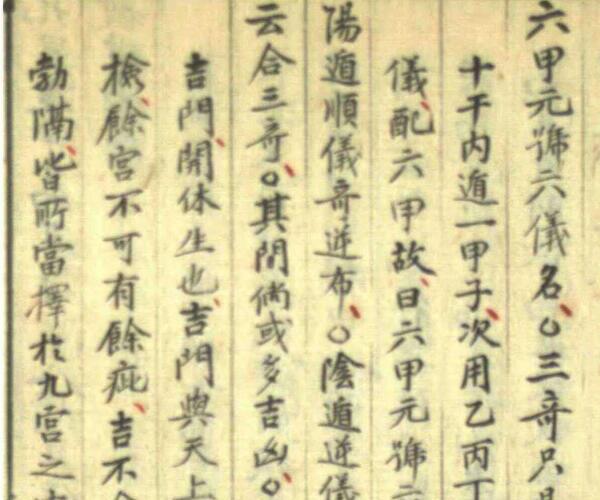 六甲元號六儀名○三奇只
十干内遁一甲子次用乙丙丁
儀配六甲故曰六甲元號
陽遁順儀奇逆布○陰遁逆儀
云合三奇○其間倘或多吉凶○
吉門開休生也吉門與天上
檢餘宮不可有餘疵吉不
勃隔皆所當擇於九宮之